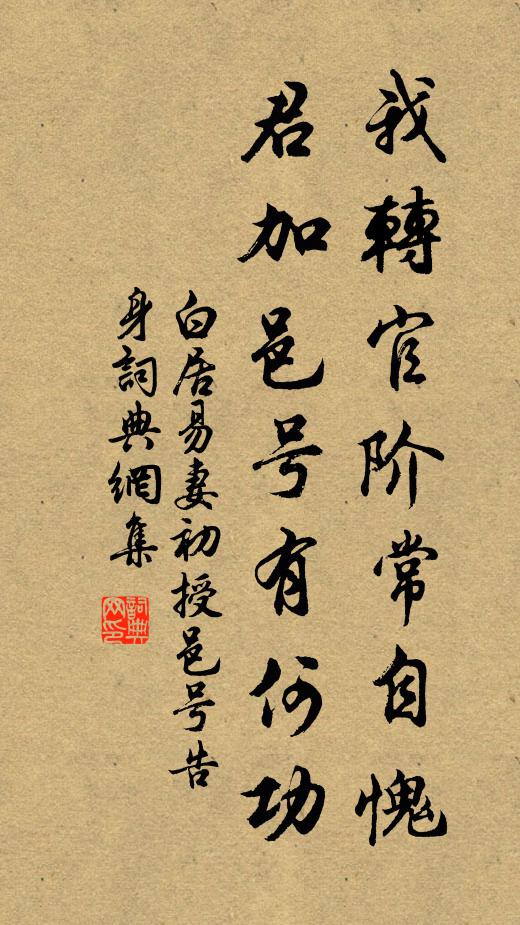 我轉官阶常自愧
君加邑号有何功
白居易妻初授邑号告
身詞典網集
詞典
网印